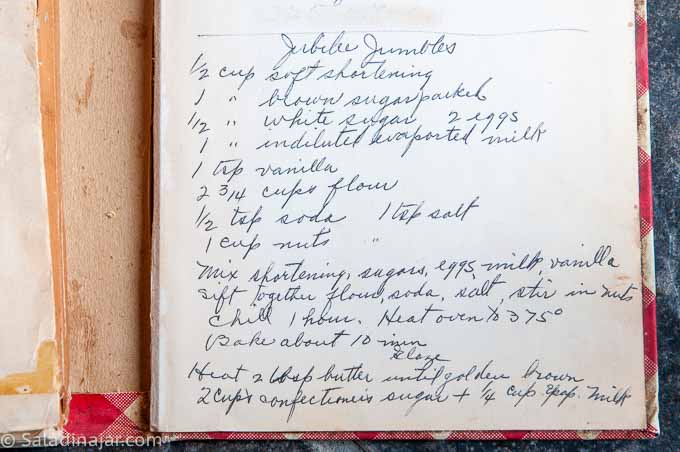 Jubilee Jumbles
1/2 cup soft shortening
1 " brown sugar packed
1/2 " white sugar 2 eggs
1 " indiluted evaporated milk
1 tsp vanilla
2 3/4 cups flour
1/2 tsp soda 1 tsp salt
1 cup nuts "
Mix shortening, sugars, eggs, milk, vanilla
Sift together flour, soda, salt, stir in nuts
Chill 1 hour. Heat oven to 375°
Bake about 10 min
Glaze
Heat 2 tbsp butter until golden brown
2 cups confectioneis sugar + 1/4 cup evap. milk
© Saladinajar.com